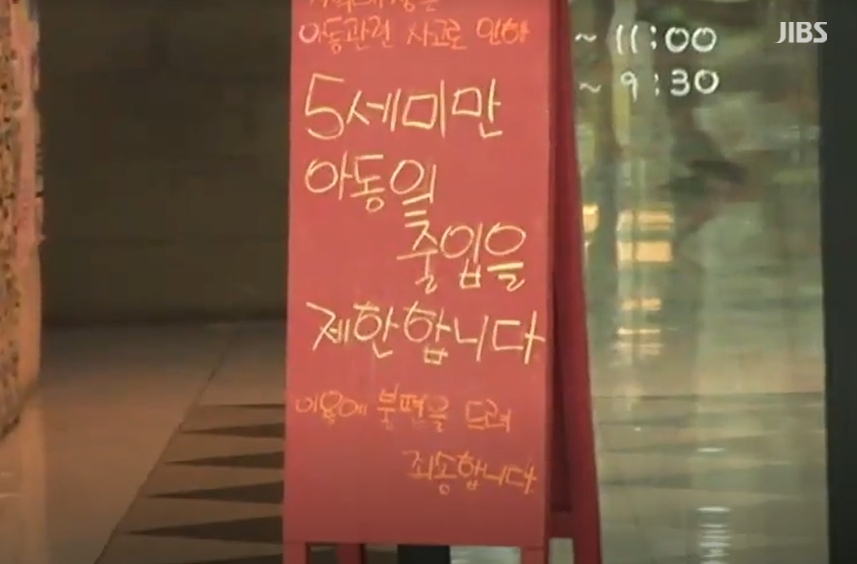 아동관련 사고로 인하
5세미만
아동의
출입을
제한합니다
이용에 불편을 드려
죄송합니다.
~ 11:00
~ 9:30
JIBS